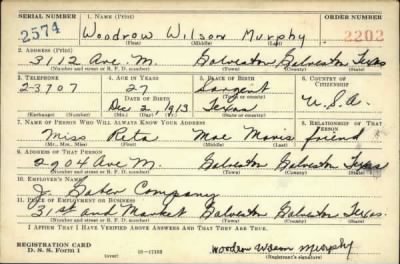 SERIAL NUMBER 1. NAME (Print) ORDER NUMBER
2574 Woodrow Wilson Murphy 2202
(First) (Middle) (Last)
2. ADDRESS (Print)
3112 Ave. M. Galveston Galveston Texas
(Number and street or R. F. D. number) (Town) (County) (State)
3. TELEPHONE 4. AGE IN YEARS 5. PLACE OF BIRTH 6. COUNTRY OF CITIZENSHIP
2-3707 27 Sargent
DATE OF BIRTH (Town or county)
Dec 2, 1913 Texas U.S.A.
(Exchange) (Number) (Mo.) (Day) (Yr.) (State or country)
7. NAME OF PERSON WHO WILL ALWAYS KNOW YOUR ADDRESS 8. RELATIONSHIP OF THAT PERSON
Miss Reta Mae friend
(Mr., Mrs., Miss) (First) (Middle) (Last)
9. ADDRESS OF THAT PERSON
2904 Ave M. Galveston Galveston Texas
(Number and street or R. F. D. number) (Town) (County) (State)
10. EMPLOYER'S NAME
Company
11. PLACE OF EMPLOYMENT OR BUSINESS
31st and Market Galveston Galveston Texas
(Number and street or R. F. D. number) (Town) (County) (State)
I AFFIRM THAT I HAVE VERIFIED ABOVE ANSWERS AND THAT THEY ARE TRUE.
REGISTRATION CARD
D. S. S. FORM 1 (over) Woodrow Wilson Murphy
(Registrant's signature)